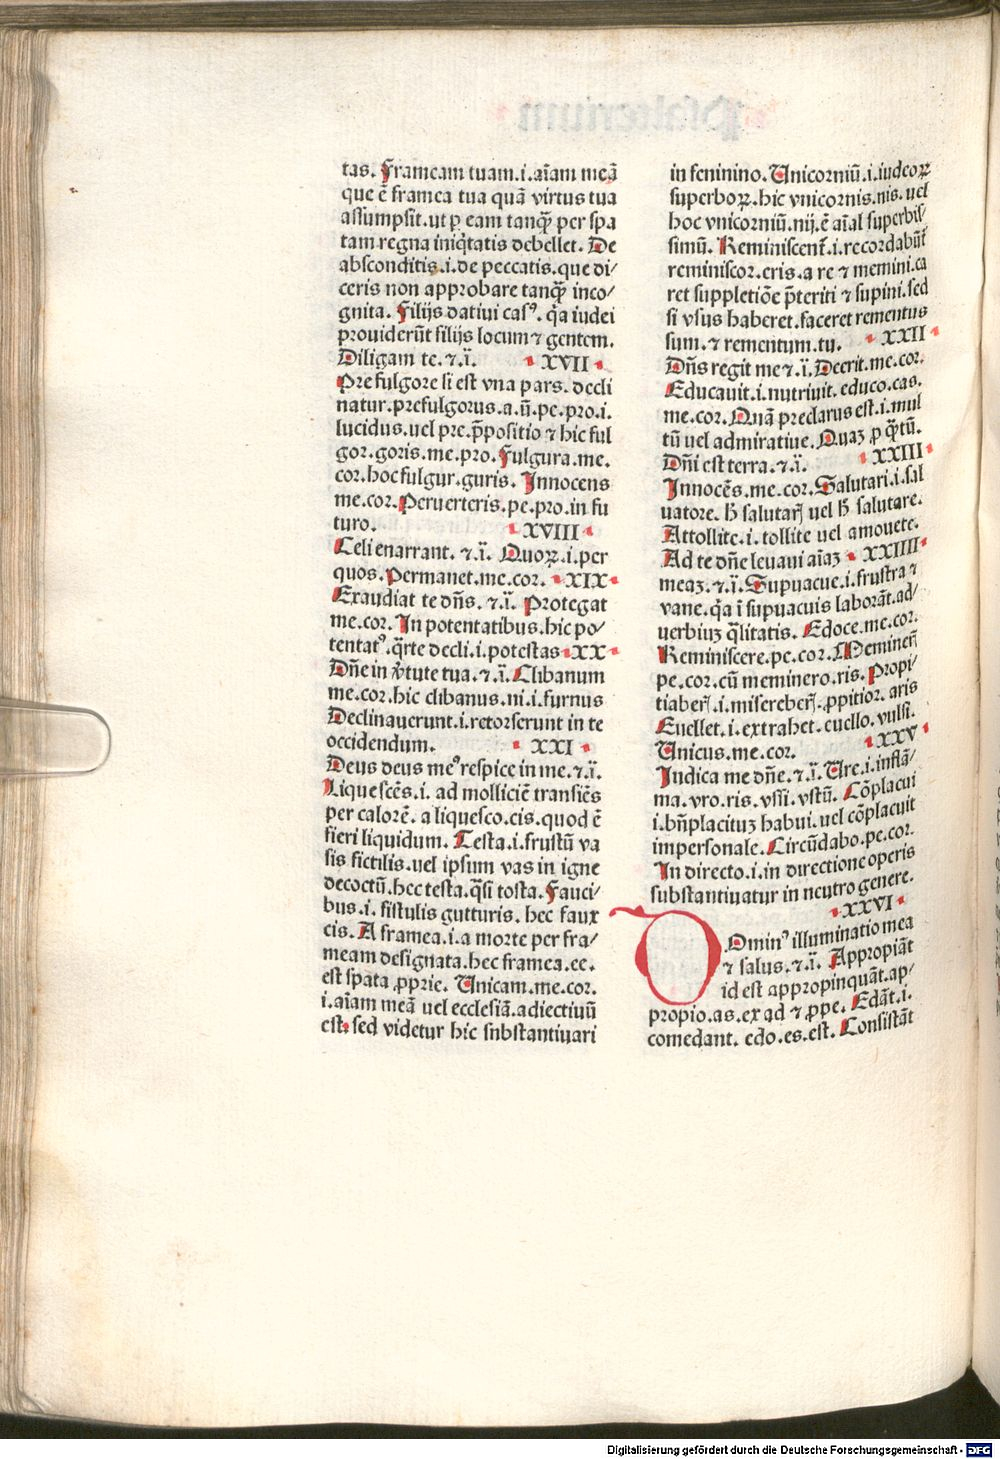 tas. Frameam tuam.i.aīam meā
que ē framea tua quā virtus tua
assumpsit.ut ꝑ eam tanqꝫ per spa
tam regna iniqͥtatis debellet. De
absconditis.i.de peccatis.que di/
ceris non approbare tanqꝫ inco/
gnita. Filijs datiui casꝰ. qͥa iudei
prouiderūt filijs locum ⁊ gentem.
Diligam te. ⁊.ï. XVII
Prefulgore si est vna pars. decli
natur. prefulgorus.a.ū.pe.pro.i.
lucidus.uel pre.p̄positio ⁊ hic ful
gor.goris.me.pro. Fulgura.me.
cor.hoc fulgur.guris. Innocens
me.cor. Peruerteris.pe.pro.in fu
turo. XVIII
Celi enarrant. ⁊.ï. Quoꝝ.i.per
quos. Permanet.me.cor. XIX
Exaudiat te dn̄s. ⁊.ï. Protegat
me.cor. In potentatibus.hic po/
tentatꝰ.qͣrte decli.i.potestas XX
Dn̄e in v̄tute tua.⁊.ï. Clibanum
me.cor.hic clibanus.ni.i.furnus
Declinauerunt.i.retorserunt in te
occidendum. XXI
Deus deus meꝰ respice in me.⁊.ï.
Liquescēs.i. ad molliciē transiēs
per calorē. a liquesco.cis.quod ē
fieri liquidum. Testa.i.frustū va
sis fictilis.uel ipsum vas in igne
decoctū.hec testa.qͣsi tosta. Fauci/
bus.i. fistulis gutturis. hec faux
cis. A framea.i.a morte per fra/
meam designata.hec framea.ee.
est spata ꝓprie. Unicam.me.cor.
i.aīam meā uel ecclesiā.adiectiuū
est. sed videtur hic snbstantiuari
in feninino. Unicorniū.i.iudeoꝝ
superboꝝ.hic vnicornis.nis. uel
hoc vnicorniū.nij.ē aīal superbis/
simū. Reminiscent̄.i.recordabūt̄
reminiscor.eris.a re ⁊ memini.ca
ret suppletiōe p̄teriti ⁊ supini.sed
si vsus haberet.faceret rementus
sum.⁊ rementum.tu. XXII
Dn̄s regit me ⁊.ï. Deerit.me.cor.
Educauit.i.nutriuit.educo.cas.
me.cor. Quā preclarus est.i.mul
tū uel admiratiue. Quaꝫ ꝓ qͣtū.
Dn̄i est terra.⁊.ï. XXIII
Innocēs.me.cor. Salutari.i.sal
uatore. h̄ salutarꝭ uel h̄ salutare.
Attollite.i.tollite uel amouete.
Ad te dn̄e leuaui aīaꝫ XXIIII
meaꝫ.⁊.ï. Supuacue.i.frustra ⁊
vane.qͥa ī supuacuis laborāt.ad/
uerbiuꝫ qͣlitatis. Edoce.me.cor.
Reminiscere.pe.cor. Meminerꝭ
pe.cor.cū meminero.ris. Propi/
tiaberꝭ.i.misereberꝭ.ꝓpitior.aris
Euellet.i.extrahet.euello.vulsi.
Unicus.me.cor. XXV
Iudica me dn̄e.⁊.ï. Ure.i.inflā/
ma.vro.ris.vssi.vstū. Cōplacui
i.bn̄placituꝫ habui.uel cōplacuit
impersonale. Circūdabo.pe.cor.
In directo.i.in directione operis
substantiuatur in neutro genere.
XXVI
Dominꝰ illuminatio mea
⁊ salus.⁊.ï. Appropiāt
id est appropinquāt.ap/
propio.as.ex ad ⁊ ꝓpe. Edāt.i.
comedant. edo.es.est. Consistāt
Digitalisierung gefördert durch die Deutsche Forschungsgemeinschaft - DFG